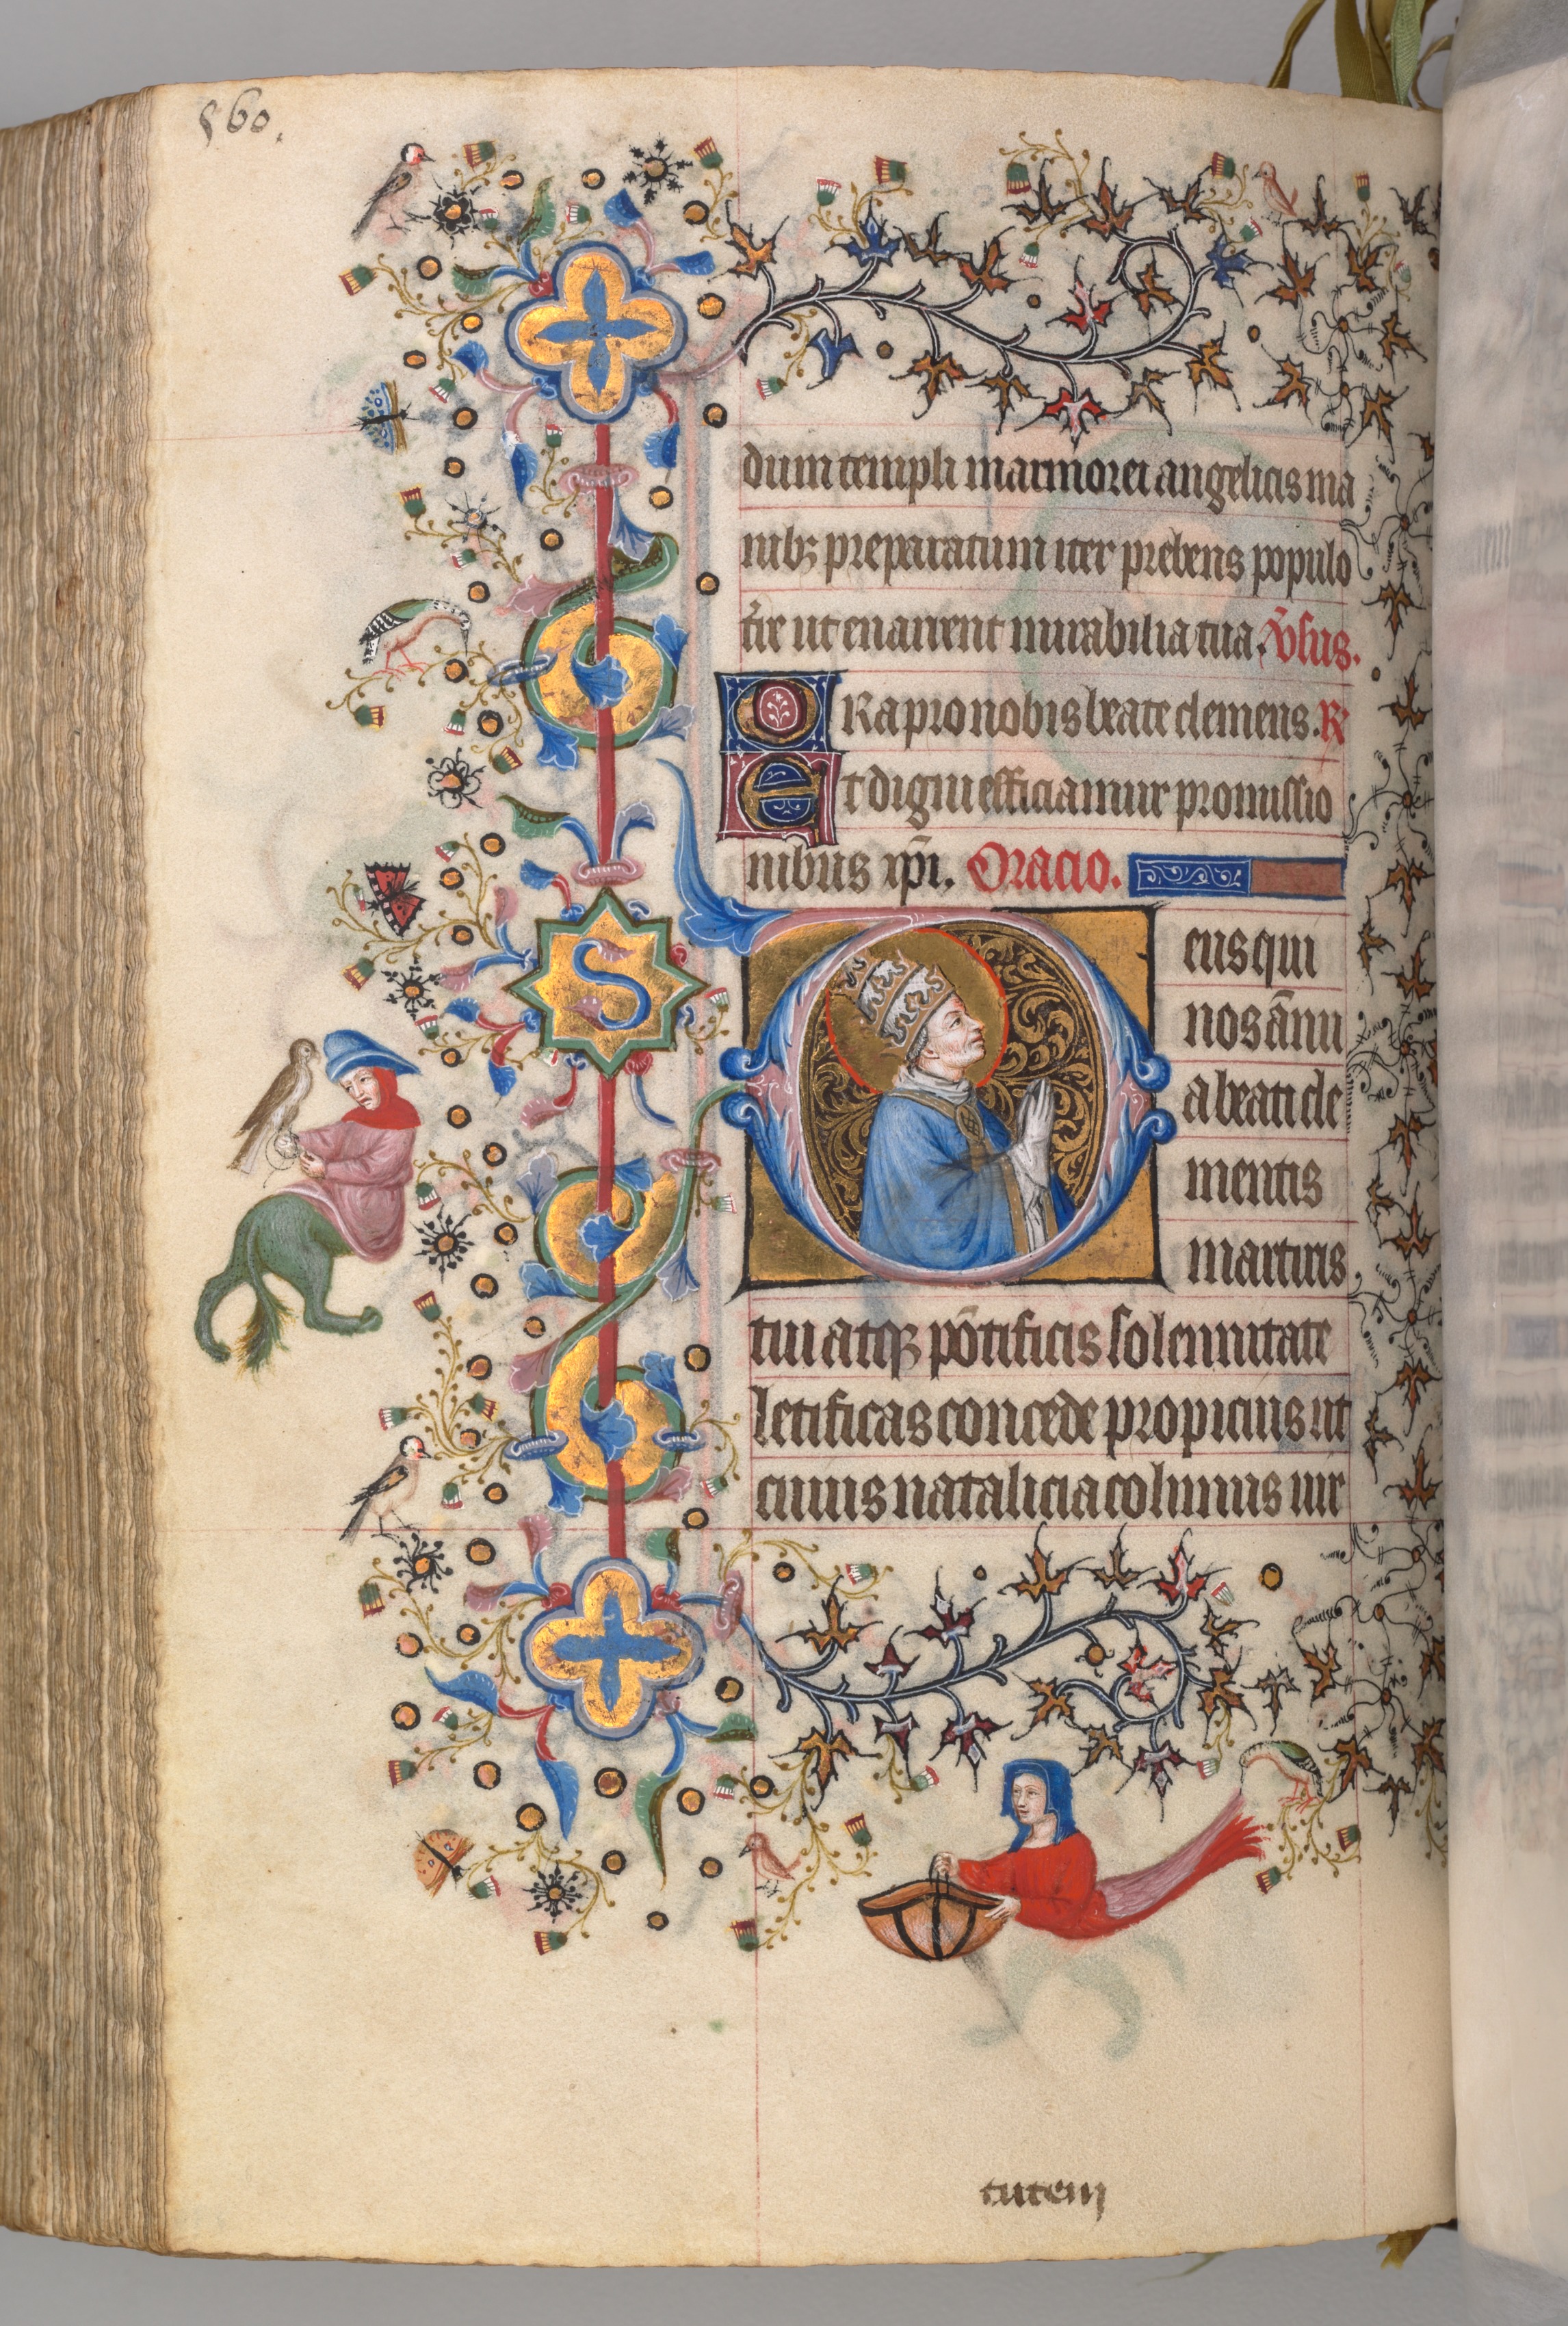 560.
dum templi marmorei angelicis ma
nibꝫ preparatum iter prebens populo
t̃re ut enarrent mirabilia tua. V̾sus.
ORa pro nobis beate clemens. R̾
Et digni efficiamur promissio
nibus xp̃i. Oracio.
S
eus qui
nos ãnu
a beati cle
mentis
martiris
tui atqꝫ põtificis solennitate
letificas concede propicius ut
cuius natalicia colimus uir
tutem